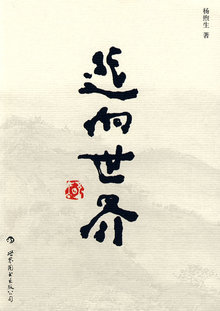 杨煦生 著
向世界
世界图书出版公司